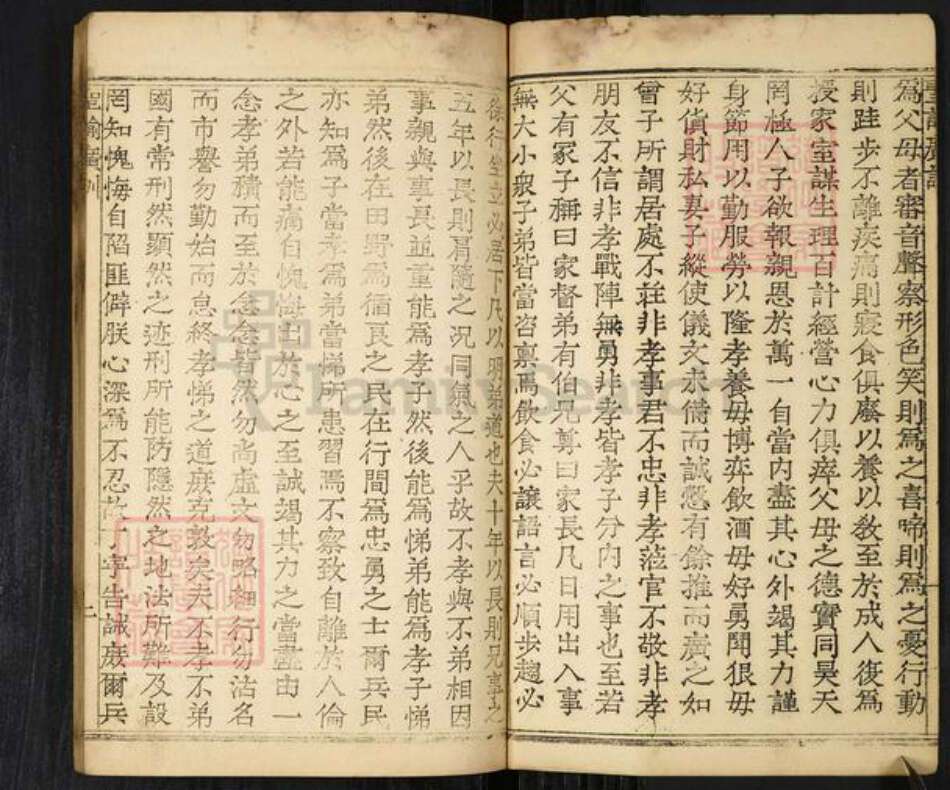 聖諭廣訓
為父母者審音聲察形色笑則為之喜啼則為之憂行動
則跬步不離疾痛則寢食俱廢以養以教至於成人復為
授家室謀生理百計經營心力俱瘁父母之德實同昊天
罔極人子欲報親恩於萬一自當內盡其心外竭其力謹
身節用以勤服勞以隆孝養毋博弈飲酒毋好勇鬭狠毋
好貨財私妻子縱使儀文未備而誠慤有餘推而廣之如
曾子所謂居處不莊非孝事君不忠非孝蒞官不敬非孝
朋友不信非孝戰陣無勇非孝皆孝子分內之事也至若
父有冢子稱曰家督弟有伯兄尊曰家長凡日用出入事
無大小衆子弟皆當咨稟焉飲食必讓語言必順步趨必
徐行坐立必居下凡以明弟道也夫十年以長則兄事之
五年以長則肩隨之况同氣之人乎故不孝與不弟相因
事親與事長並重能為孝子然後能為悌弟能為孝子悌
弟然後在田野為循良之民在行間為忠勇之士爾兵民
亦知為子當孝為弟當悌所患習焉不察致自離於人倫
之外若能痛自愧悔出於心之至誠竭其力之當盡由一
念孝弟積而至於念念皆然勿尚虛文勿略細行勿沽名
而市譽勿勤始而怠終孝悌之道庶克敦矣夫不孝不弟
國有常刑然顯然之迹刑所能防隱然之地法所難及設
罔知愧悔自陷匪僻朕心深為不忍故丁寧告誡庶爾兵
聖諭廣訓
二
FamilySearch